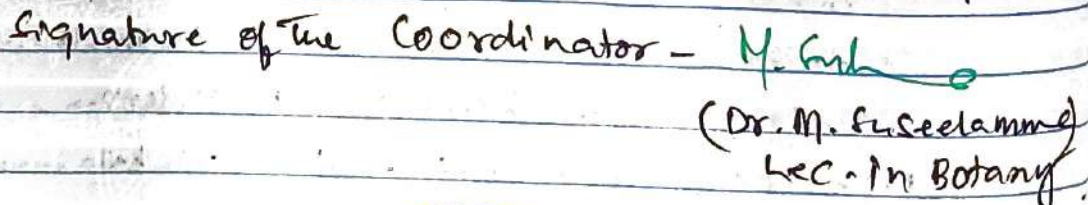 Signature of The Coordinator - M. Sush
(Dr. M. Suseelamma)
Lec. In Botany